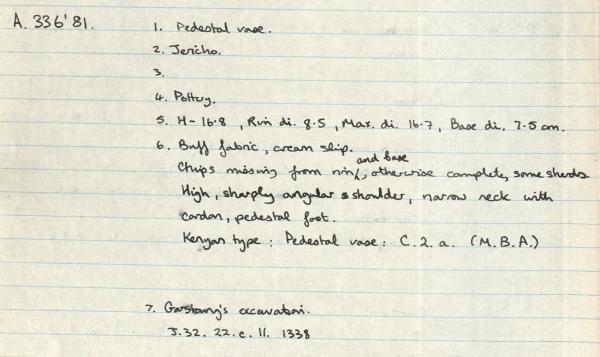 A. 336'81.
1. Pedestal vase.
2. Jericho.
3.
4. Pottery.
5. H - 16.8, Rim di. 8.5, Max. di. 16.7, Base di. 7.5 cm.
6. Buff fabric, cream slip.
Chips missing from rim and base, otherwise complete, some sherds
High, sharply angular shoulder, narrow neck with
cordon, pedestal foot.
Kenyon type : Pedestal vase : C.2.a. (M.B.A.)
7. Garstang's excavation.
J.32. 22.c. 11. 1338